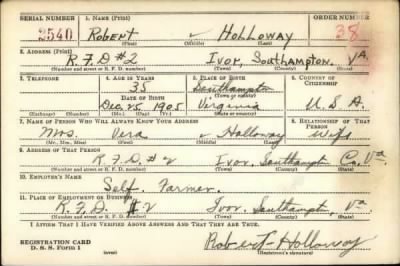 SERIAL NUMBER 1. NAME (Print) ORDER NUMBER
2540 ROBERT ✓ HOLLOWAY 38
(First) (Middle) (Last)
2. ADDRESS (Print)
R.F.D #2 IVOR, SOUTHAMPTON. VA.
(Number and street or R. F. D. number) (Town) (County) (State)
3. TELEPHONE 4. AGE IN YEARS 5. PLACE OF BIRTH 6. COUNTRY OF CITIZENSHIP
35 Southampton
(Town or county)
DATE OF BIRTH
Dec. 25 1905 Virginia U.S.A.
(Exchange) (Number) (Mo.) (Day) (Yr.) (State or country)
7. NAME OF PERSON WHO WILL ALWAYS KNOW YOUR ADDRESS 8. RELATIONSHIP OF THAT PERSON
Mrs. Vera ✓ Holloway Wife
(Mr., Mrs., Miss) (First) (Middle) (Last)
9. ADDRESS OF THAT PERSON
R.F.D. #2 Ivor. Southampton Co. Va.
(Number and street or R. F. D. number) (Town) (County) (State)
10. EMPLOYER'S NAME
Self. Farmer.
11. PLACE OF EMPLOYMENT OR BUSINESS
R.F.D. #2 Ivor. Southampton, Va.
(Number and street or R. F. D. number) (Town) (County) (State)
I AFFIRM THAT I HAVE VERIFIED ABOVE ANSWERS AND THAT THEY ARE TRUE.
REGISTRATION CARD
D. S. S. Form 1 (over) Robert Holloway
(Registrant's signature)